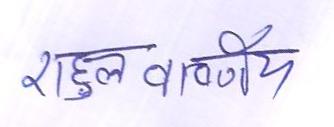 राहुल वार्ष्णेय